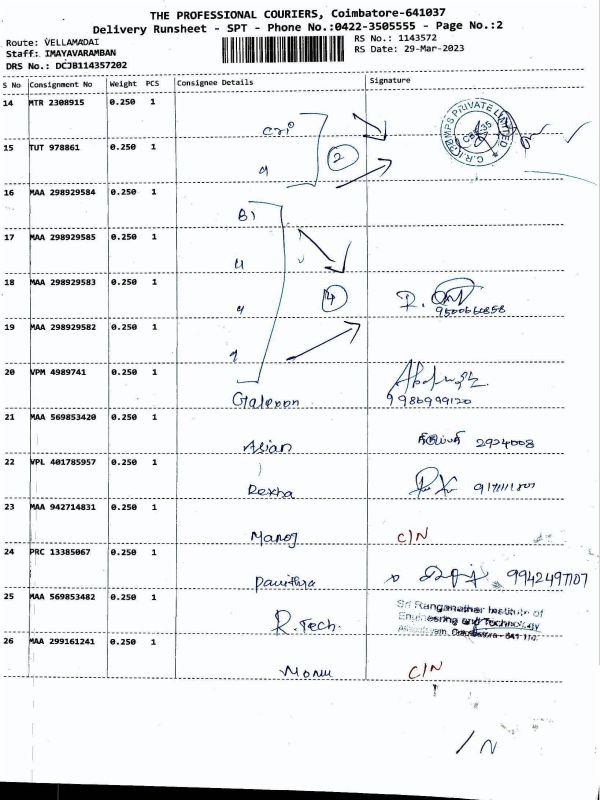 THE PROFESSIONAL COURIERS, Coimbatore-641037
Delivery Runsheet - SPT - Phone No.:0422-3505555 - Page No.:2
Route: VELLAMADAI
RS No.: 1143572
Staff: IMAYAVARAMBAN
RS Date: 29-Mar-2023
DRS No.: DCJB114357202
S No Consignment No Weight PCS Consignee Details Signature
14 MTR 2308915 0.250 1
15 TUT 978861 0.250 1
2
16 MAA 298929584 0.250 1
17 MAA 298929585 0.250 1
18 MAA 298929583 0.250 1
4
19 MAA 298929582 0.250 1
20 VPM 4989741 0.250 1
9986999120
21 MAA 569853420 0.250 1
Asian 2924008
22 VPL 401785957 0.250 1
Rexha
23 MAA 942714831 0.250 1
Manoj C/N
24 PRC 13385067 0.250 1
Pavithra 9942497107
25 MAA 569853482 0.250 1
Sri Ranganathar Institute of
Engineering and Technology
R.Tech.
26 MAA 299161241 0.250 1
C/N